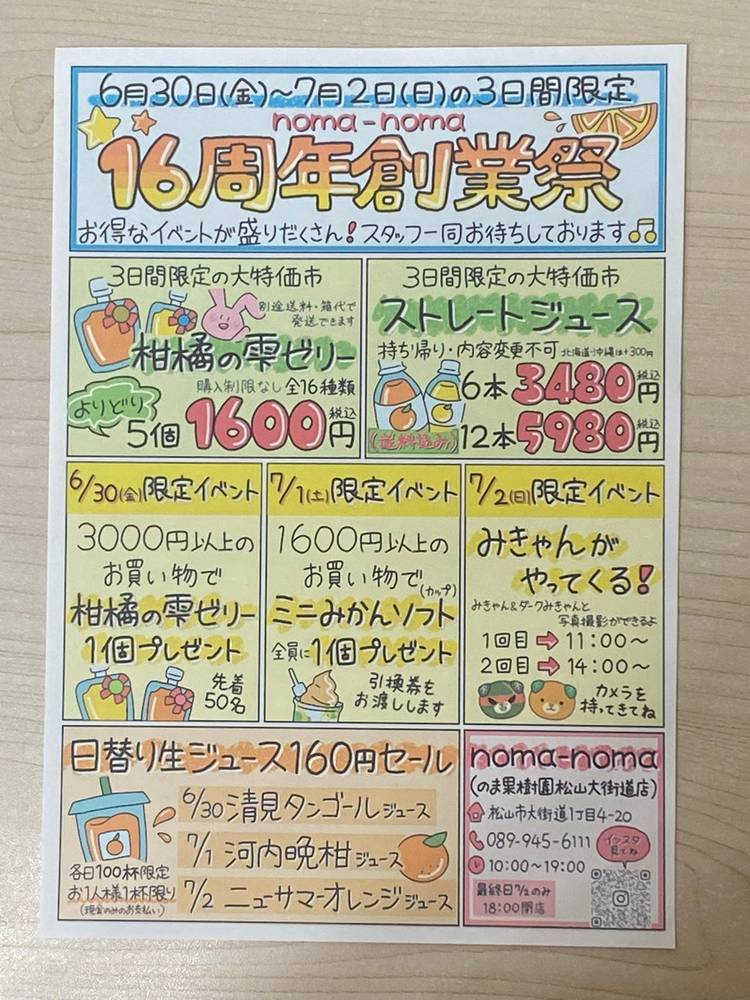 6月30日(金)~7月2日(日)の3日間限定
noma-noma
16周年創業祭
お得なイベントが盛りだくさん!スタッフ一同お待ちしております♫
3日間限定の大特価市
別途送料・箱代で
発送できます
柑橘の雫ゼリー
購入制限なし 全16種類
よりどり
5個 1600円 税込
3日間限定の大特価市
ストレートジュース
持ち帰り・内容変更不可 北海道・沖縄は+300円
6本 3480円 税込
(送料込み)
12本 5980円 税込
6/30(金)限定イベント
3000円以上の
お買い物で
柑橘の雫ゼリー
1個プレゼント
先着
50名
7/1(土)限定イベント
1600円以上の
お買い物で
(カップ)
ミニみかんソフト
全員に1個プレゼント
引換券を
お渡しします
7/2(日)限定イベント
みきゃんが
やってくる!
みきゃん&ダークみきゃんと
写真撮影ができるよ
1回目➡11:00~
2回目➡14:00~
カメラを
持ってきてね
日替り生ジュース160円セール
6/30 清見タンゴールジュース
7/1 河内晩柑ジュース
7/2 ニューサマーオレンジジュース
各日100杯限定
お1人様1杯限り
(現金のみのお支払い)
noma-noma
(のま果樹園松山大街道店)
松山市大街道1丁目4-20
089-945-6111
インスタ
見てね
10:00~19:00
最終日7/2のみ
18:00閉店